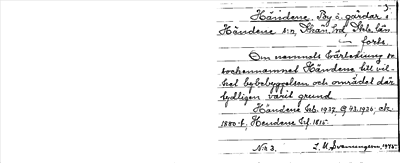 3
Händene. By o. gårdar i
Händene sn, Skån. hd, Skb. län
forts.
Om namnets härledning se
sockennamnet Händene till vil-
ket bybebyggelsen och området där
tydligen varit grund
Händene Geb. 1937, G 43, 1936, ek.
1880-t, Hendene Gf. 1815
N:r 3. L. M. Svanungson, 1975